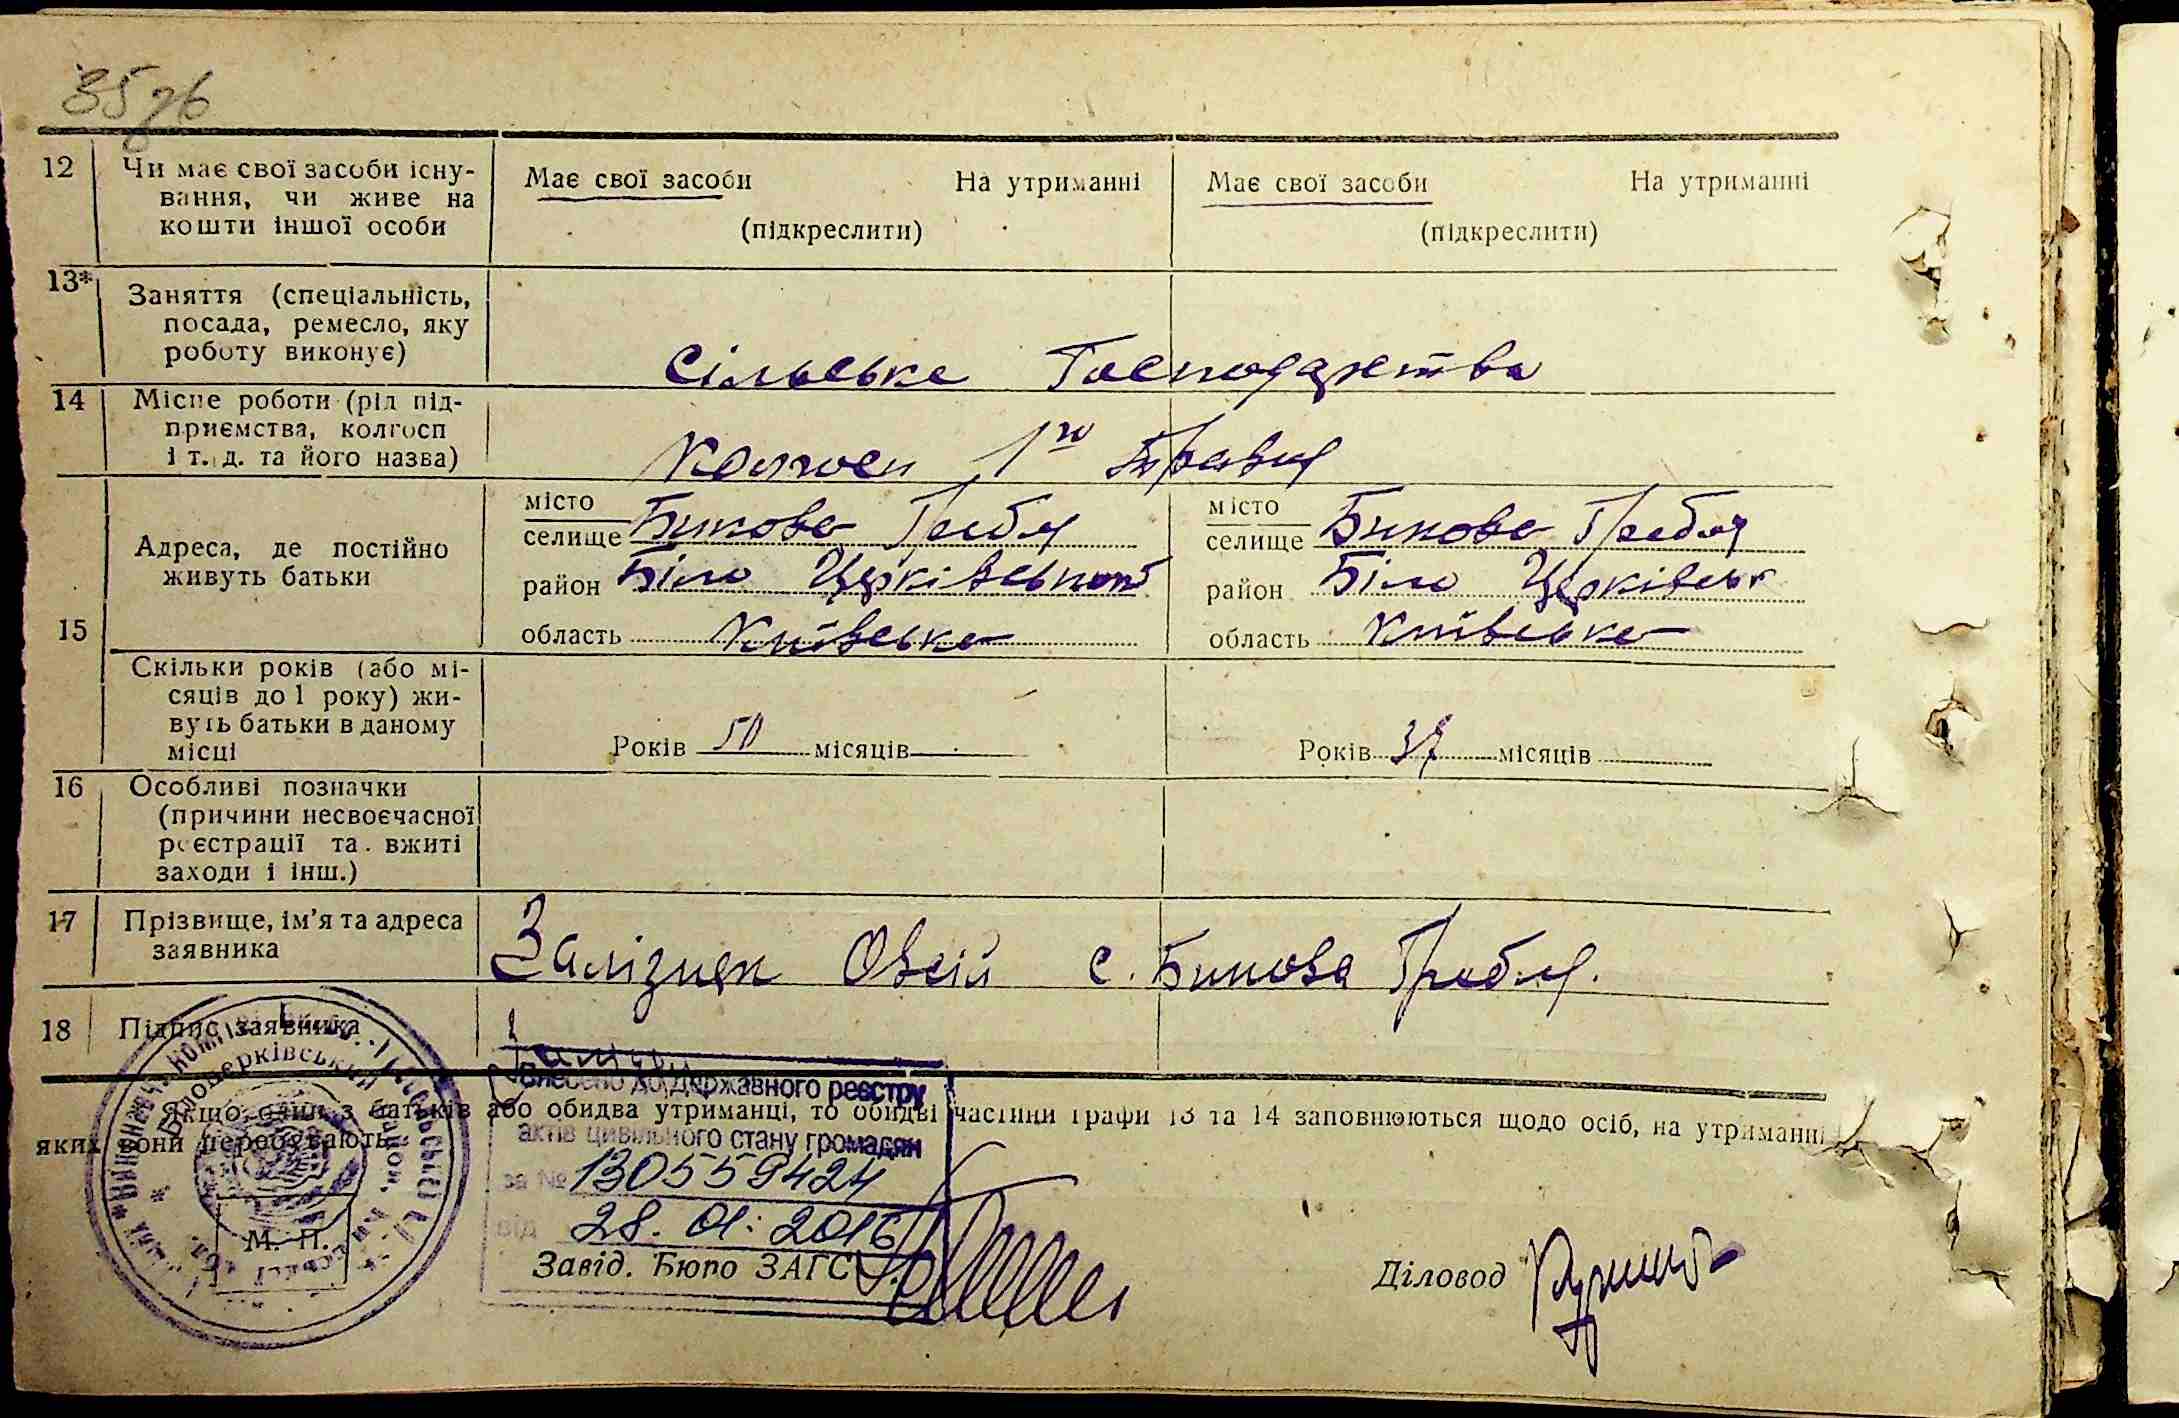 35зв
12 Чи має свої засоби існу-
вання, чи живе на
кошти іншої особи
Має свої засоби На утриманні
(підкреслити)
Має свої засоби На утриманні
(підкреслити)
13* Заняття (спеціальність,
посада, ремесло, яку
роботу виконує)
Сільське Господарства
14 Місце роботи (рід під-
приємства, колгосп
і т. д. та його назва)
Колгосп 1го Травня
15
Адреса, де постійно
живуть батьки
місто
селище Бикова Гребля
район Біло Церківської
область Київська
місто
селище Бикова Гребля
район Біло Церківськ
область Київська
Скільки років (або мі-
сяців до 1 року) жи-
вуть батьки в даному
місці
Років 50 місяців
Років 37 місяців
16 Особливі позначки
(причини несвоєчасної
реєстрації та вжиті
заходи і інш.)
17 Прізвище, ім'я та адреса
заявника
Залізняк Овсій с. Бикова Гребля.
18 Підпис заявника
Якщо один з батьків або обидва утриманці, то обидві частини графи 13 та 14 заповнюються щодо осіб, на утриманні
яких вони перебувають.
Внесено до Державного реєстру
актів цивільного стану громадян
за № 130559424
від 28.01.2016
М. П.
Завід. Бюро ЗАГС
Діловод
Білоцерківський